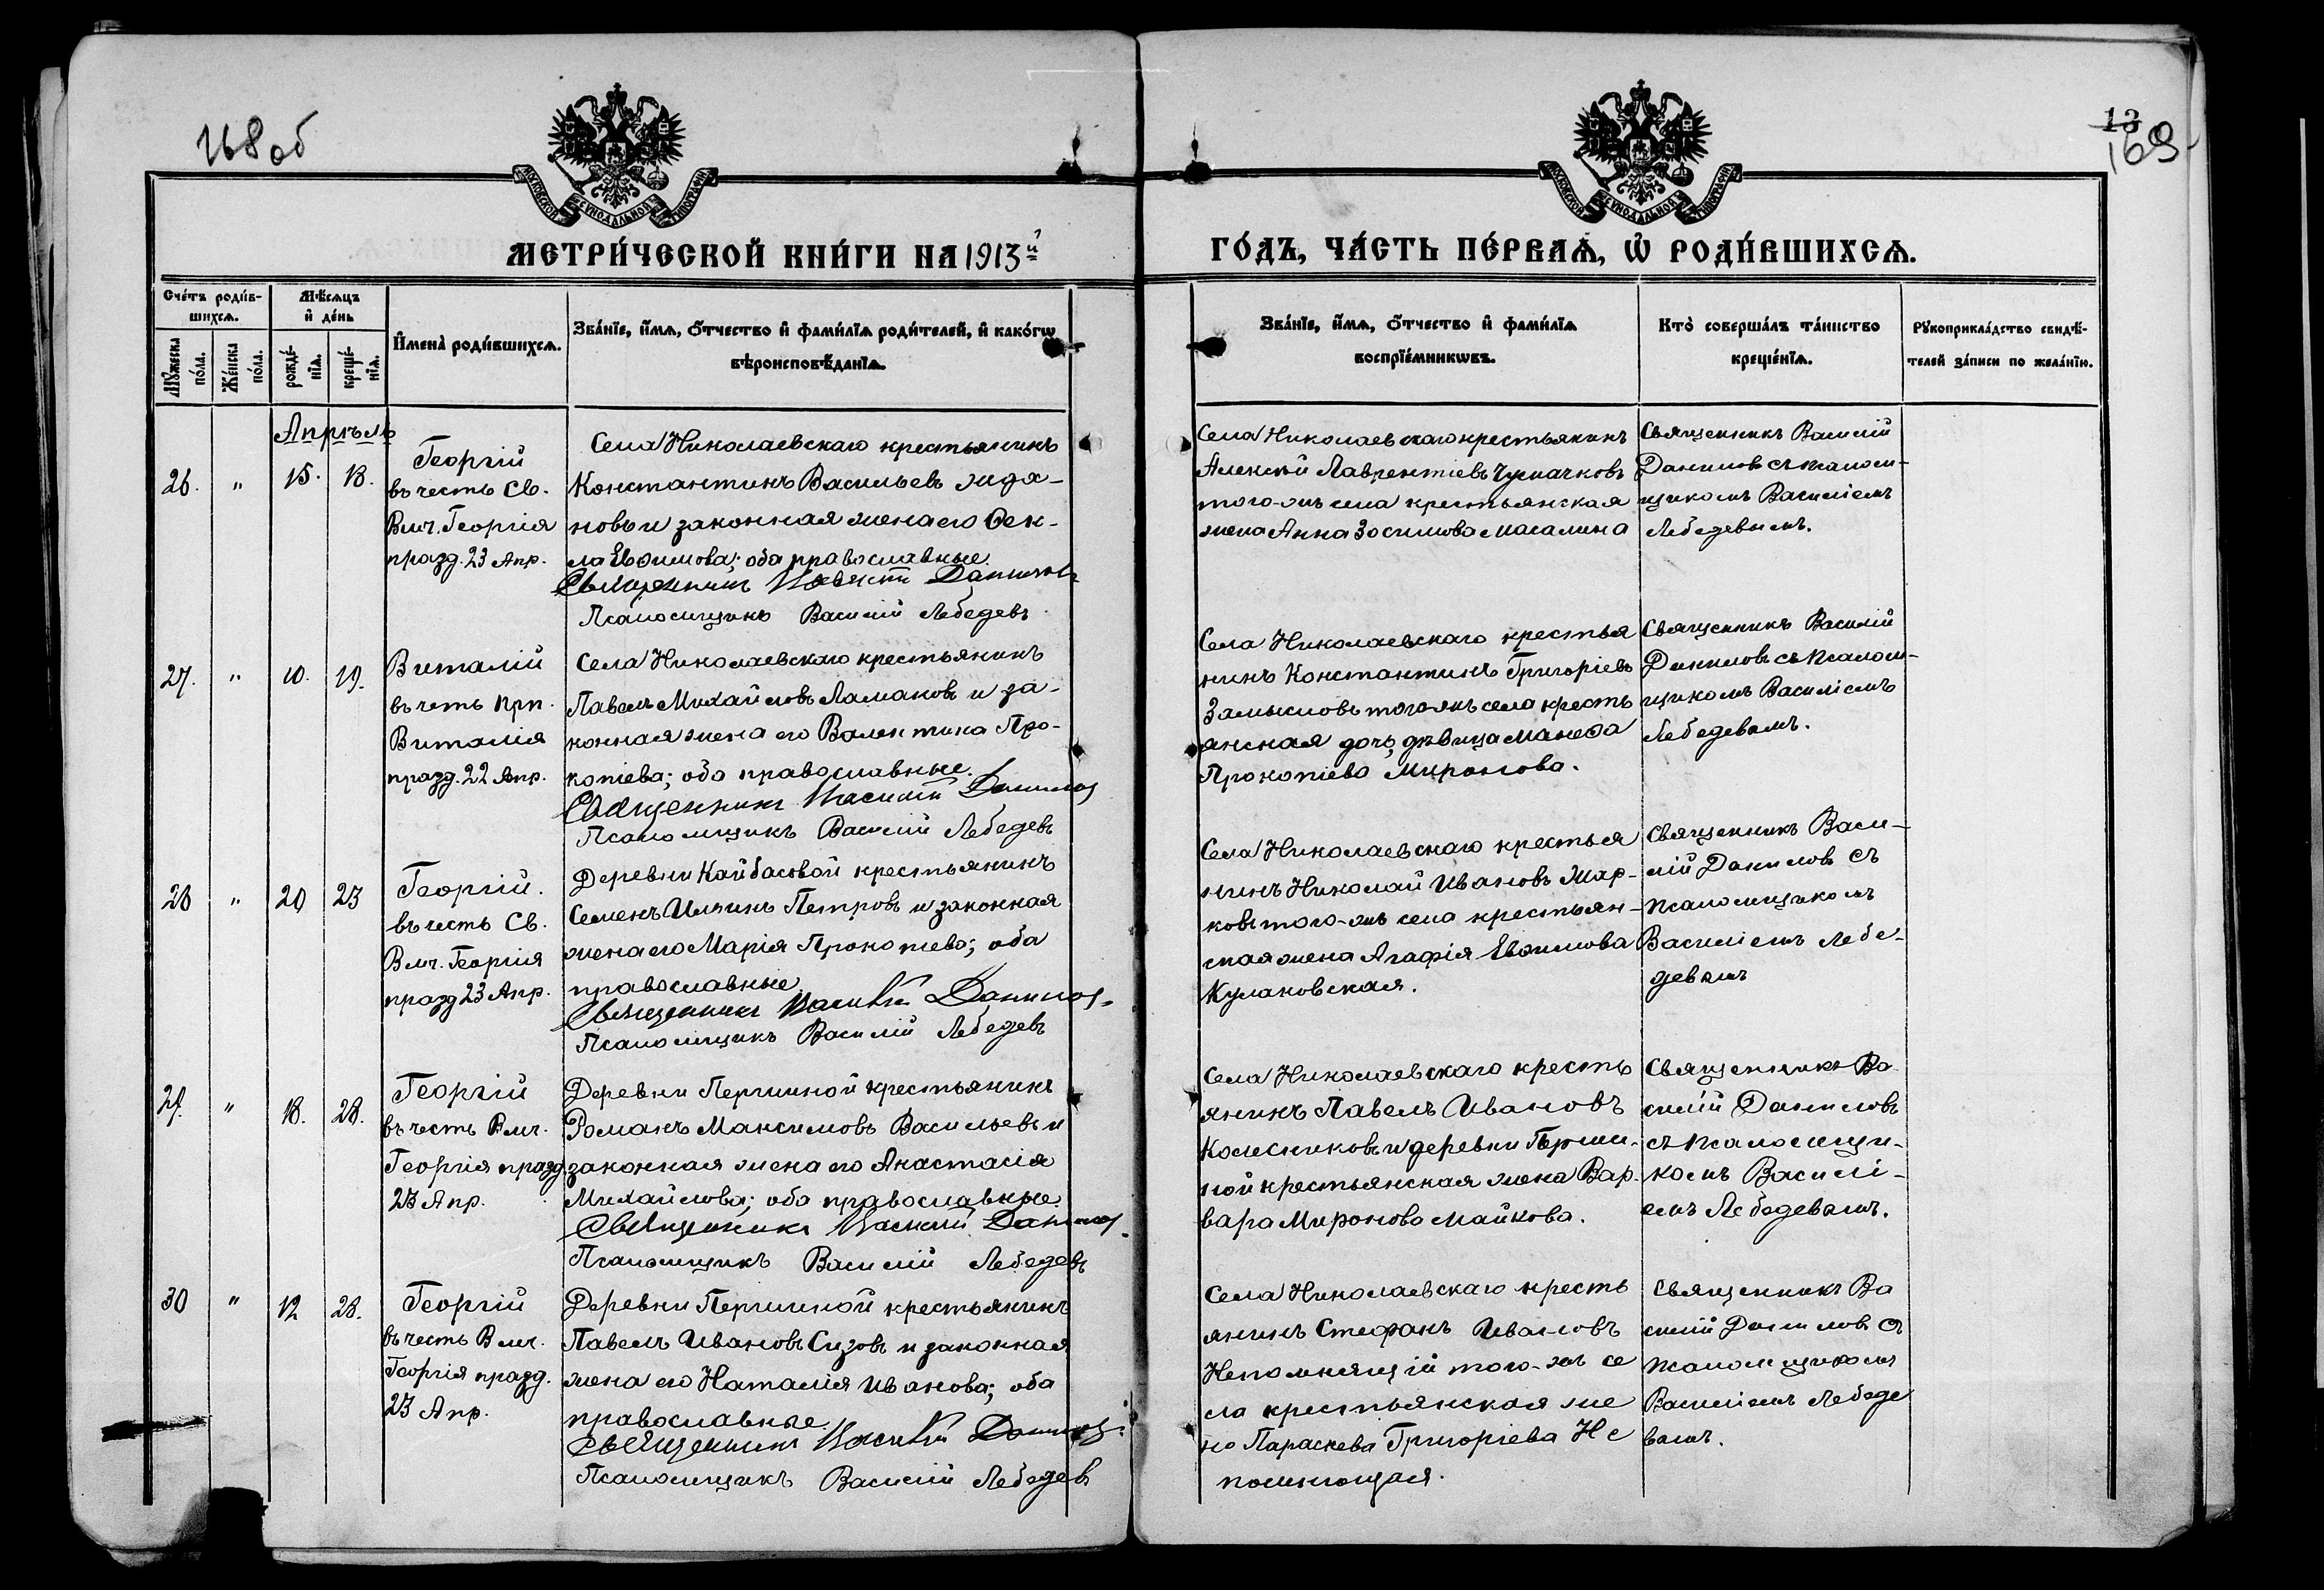 168 об
13
169
МОСКОВСКОЙ СѴНОДАЛЬНОЙ ТИПОГРАФІИ
МОСКОВСКОЙ СѴНОДАЛЬНОЙ ТИПОГРАФІИ
МЕТРИ́ЧЕСКОЙ КНИ́ГИ НА 1913й
ГО́ДЪ, ЧА́СТЬ ПЕ́РВАѦ, Ѽ РОДИ́ВШИХСѦ.
Сче́тъ роди́в-
шихсѧ.
Мѣ́сѧцъ
и҆ де́нь
Мꙋ́жеска
по́ла.
Же́нска
по́ла.
рожде́-
нїѧ.
креще́-
нїѧ.
И҆мена̀ роди́вшихсѧ.
Зва́нїе, и҆́мѧ, ѻ҆́тчество и҆ фами́лїѧ роди́телей, и҆ како́гѡ
вѣроисповѣ́данїѧ.
Зва́нїе, и҆́мѧ, ѻ҆́тчество и҆ фами́лїѧ
воспрїе́мникѡвъ.
Кто̀ соверша́лъ та́инство
креще́нїѧ.
Рꙋкоприкла́дство свидѣ́-
телей за́писи по жела́нїю.
Апрѣль
26. " 15. 18.
Георгій
въ честь Св.
Влмч. Георгія
празд. 23 Апр.
Села Николаевскаго крестьянинъ
Константинъ Васильевъ Жда-
новъ и законная жена его Фек-
ла Евфимова; оба православные.
Священникъ Василій Даниловъ
Псаломщикъ Василій Лебедевъ
Села Николаевскаго крестьянинъ
Алексѣй Лаврентіевъ Чумачковъ
того-жъ села крестьянская
жена Анна Зосимова Масалина
Священникъ Василій
Даниловъ съ псалом-
щикомъ Василіемъ
Лебедевымъ.
27. " 10. 19.
Виталій
въ честь прп.
Виталія
празд. 22 Апр.
Села Николаевскаго крестьянинъ
Павелъ Михайловъ Ламановъ и за-
конная жена его Валентина Про-
копіева; оба православные.
Священникъ Василій Даниловъ
Псаломщикъ Василій Лебедевъ
Села Николаевскаго крестья
нинъ Константинъ Григоріевъ
Замысловъ того жъ села кресть
янская дочь дѣвица Манефа
Прокопіева Миронова.
Священникъ Василій
Даниловъ съ псалом-
щикомъ Василіемъ
Лебедевымъ.
28 " 20 23
Георгій.
въ честь Св.
Влмч. Георгія
празд 23 Апр.
Деревни Кайбасовой крестьянинъ
Семенъ Ильинъ Петровъ и законная
жена его Марія Прокопіева; оба
православные.
Священникъ Василій Даниловъ
Псаломщикъ Василій Лебедевъ
Села Николаевскаго крестья
нинъ Николай Ивановъ Жар-
ковъ того-жъ села крестьян-
ская жена Агафія Евфимова
Кулаковская.
Священникъ Васи-
лій Даниловъ съ
псаломщикомъ
Василіемъ Лебе-
девымъ
29. " 18. 28.
Георгій
въ честь Влмч.
Георгія празд.
23 Апр.
Деревни Першиной крестьянинъ
Романъ Максимовъ Васильевъ и
законная жена его Анастасія
Михайлова; оба православные.
Священникъ Василій Даниловъ.
Псаломщикъ Василій Лебедевъ
Села Николаевскаго кресть
янинъ Павелъ Ивановъ
Колесниковъ и деревни Перши-
ной крестьянская жена Вар-
вара Миронова Майкова.
Священникъ Ва
силій Даниловъ
съ псаломщи-
комъ Василі-
емъ Лебедевымъ.
30 " 12 28.
Георгій
въ честь Влмч.
Георгія празд.
23 Апр.
Деревни Першиной крестьянинъ
Павелъ Ивановъ Сизовъ и законная
жена его Наталія Иванова; оба
православные.
Священникъ Василій Даниловъ
Псаломщикъ Василій Лебедевъ
Села Николаевскаго кресть
янинъ Стефанъ Ивановъ
Непомнящій того-жъ се
ла крестьянская же
на Параскева Григоріева Не
помнющая.
Священникъ Ва
силій Даниловъ съ
псаломщикомъ
Василіемъ Лебеде
вымъ.